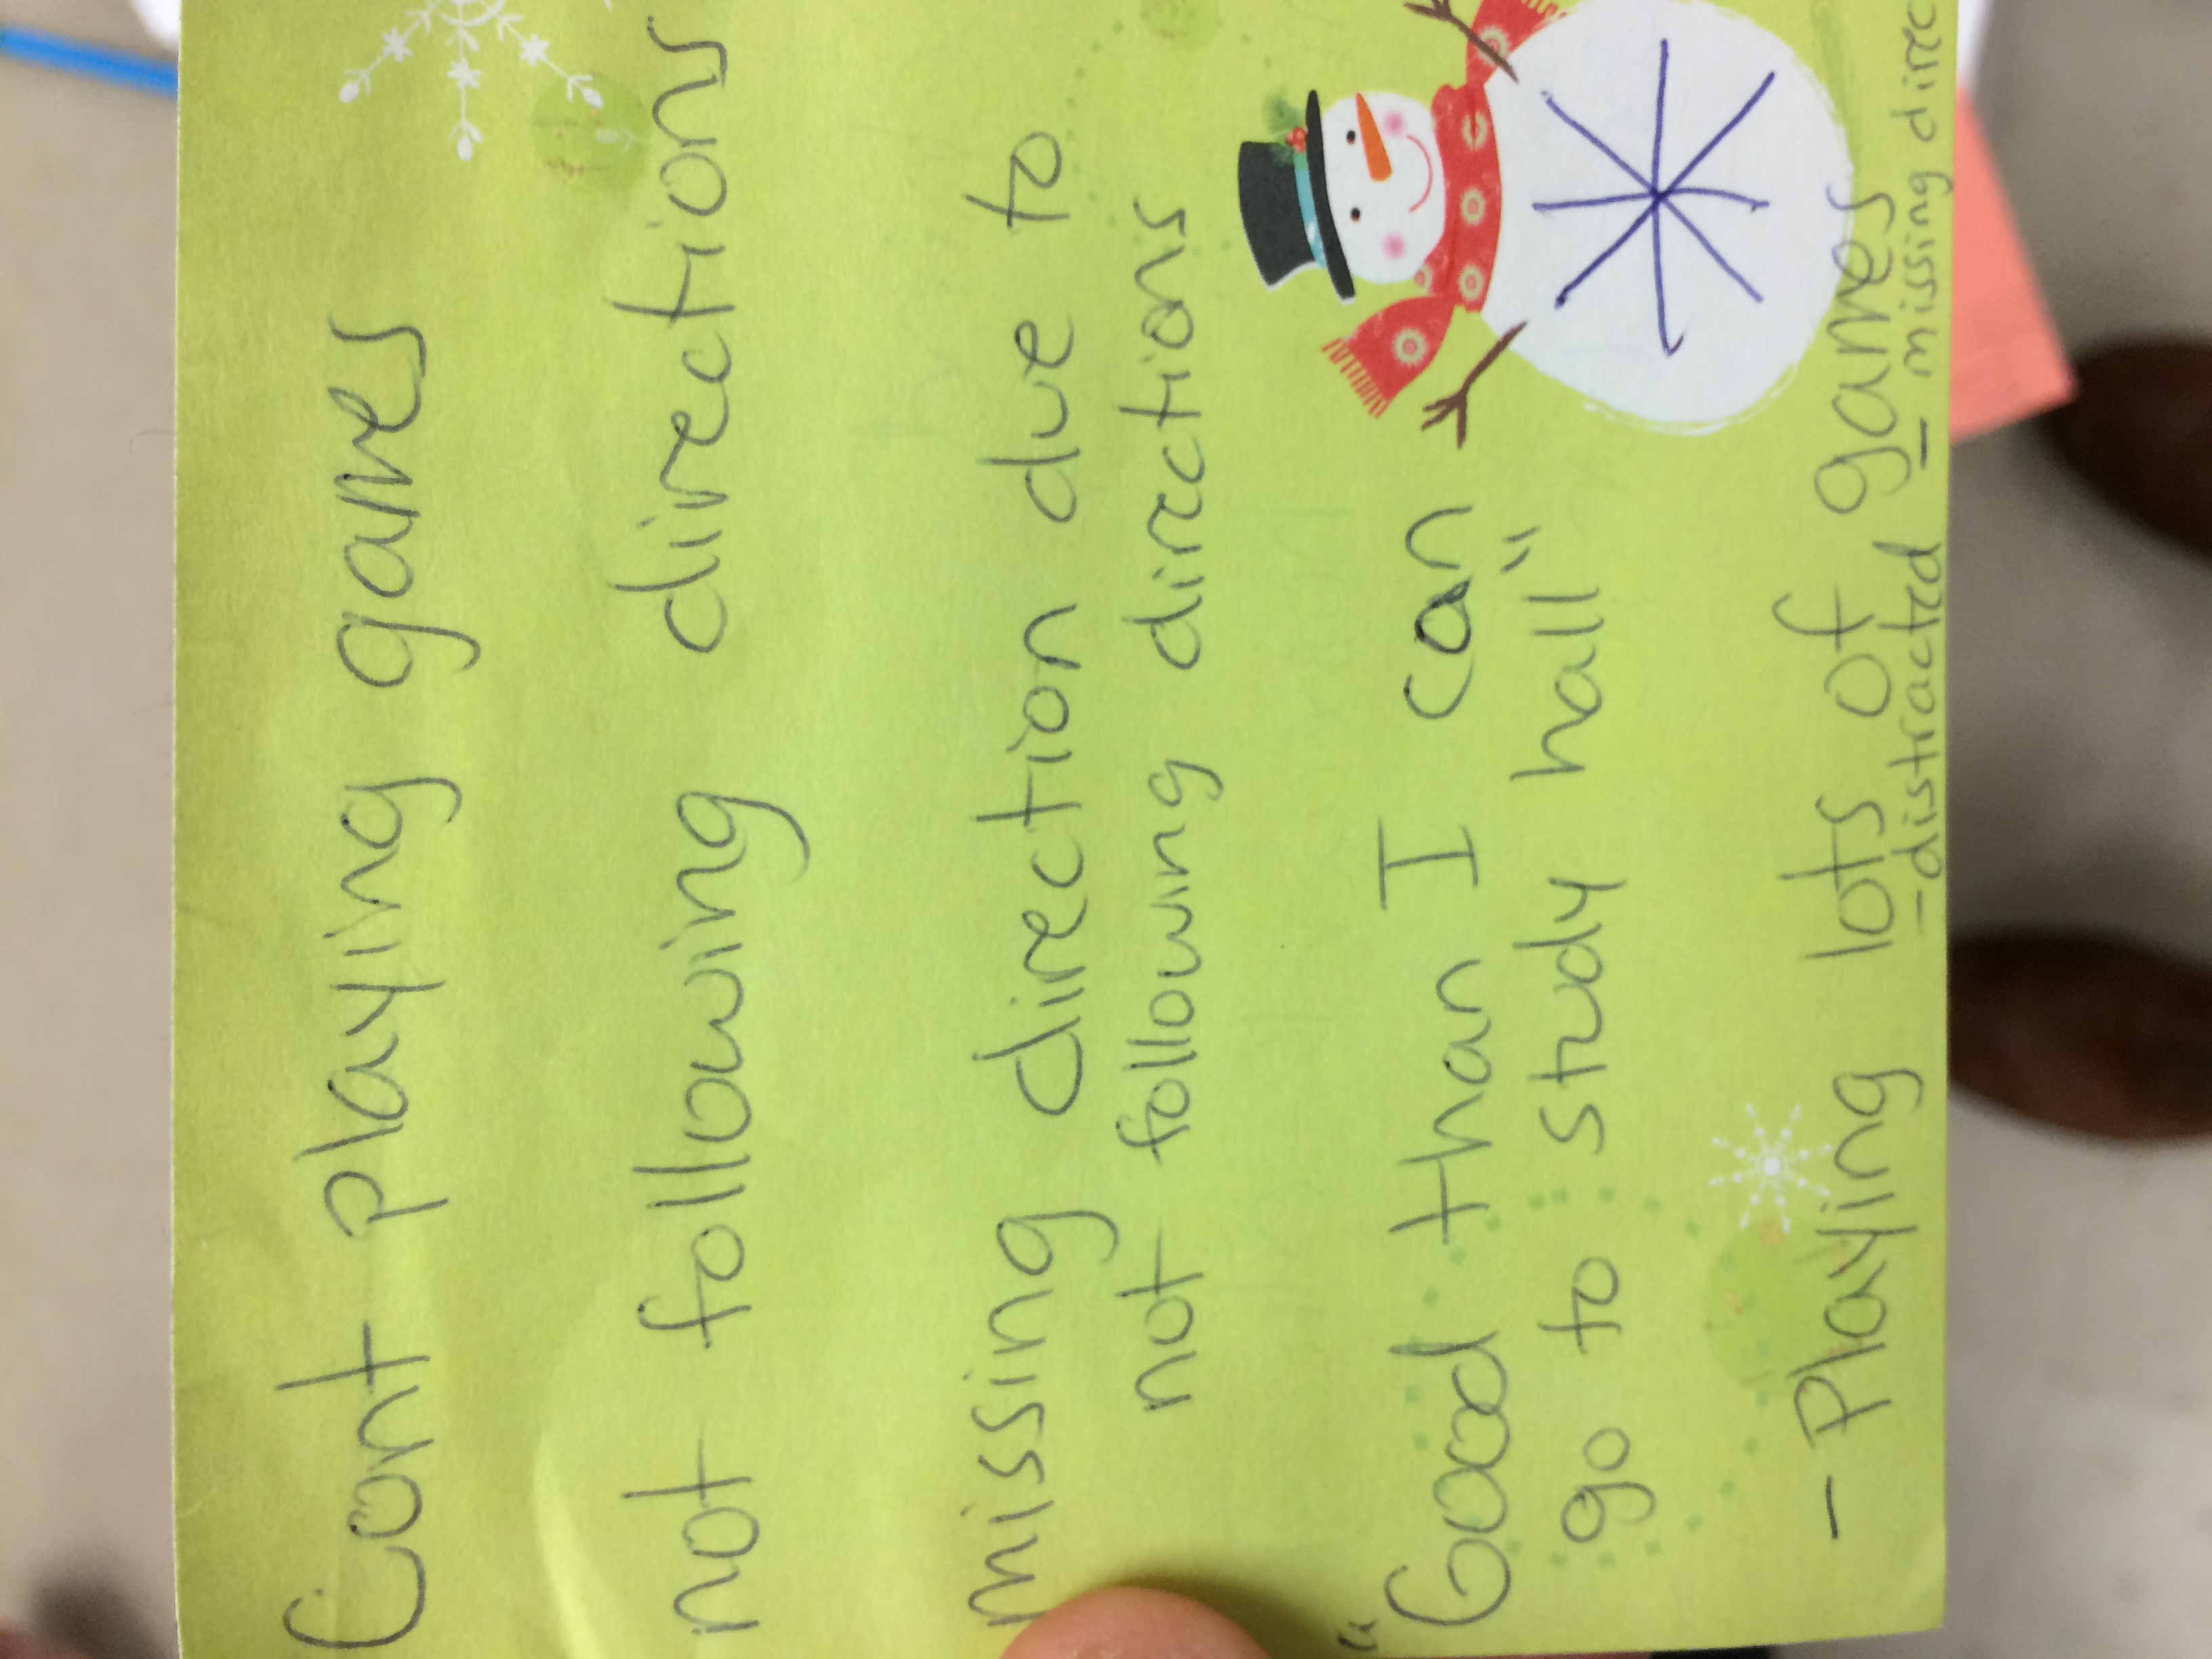 Cont playing games
not following directions
missing direction due to
not following directions
"Good than I can
go to study hall"
- Playing lots of games
- distracted - missing direc